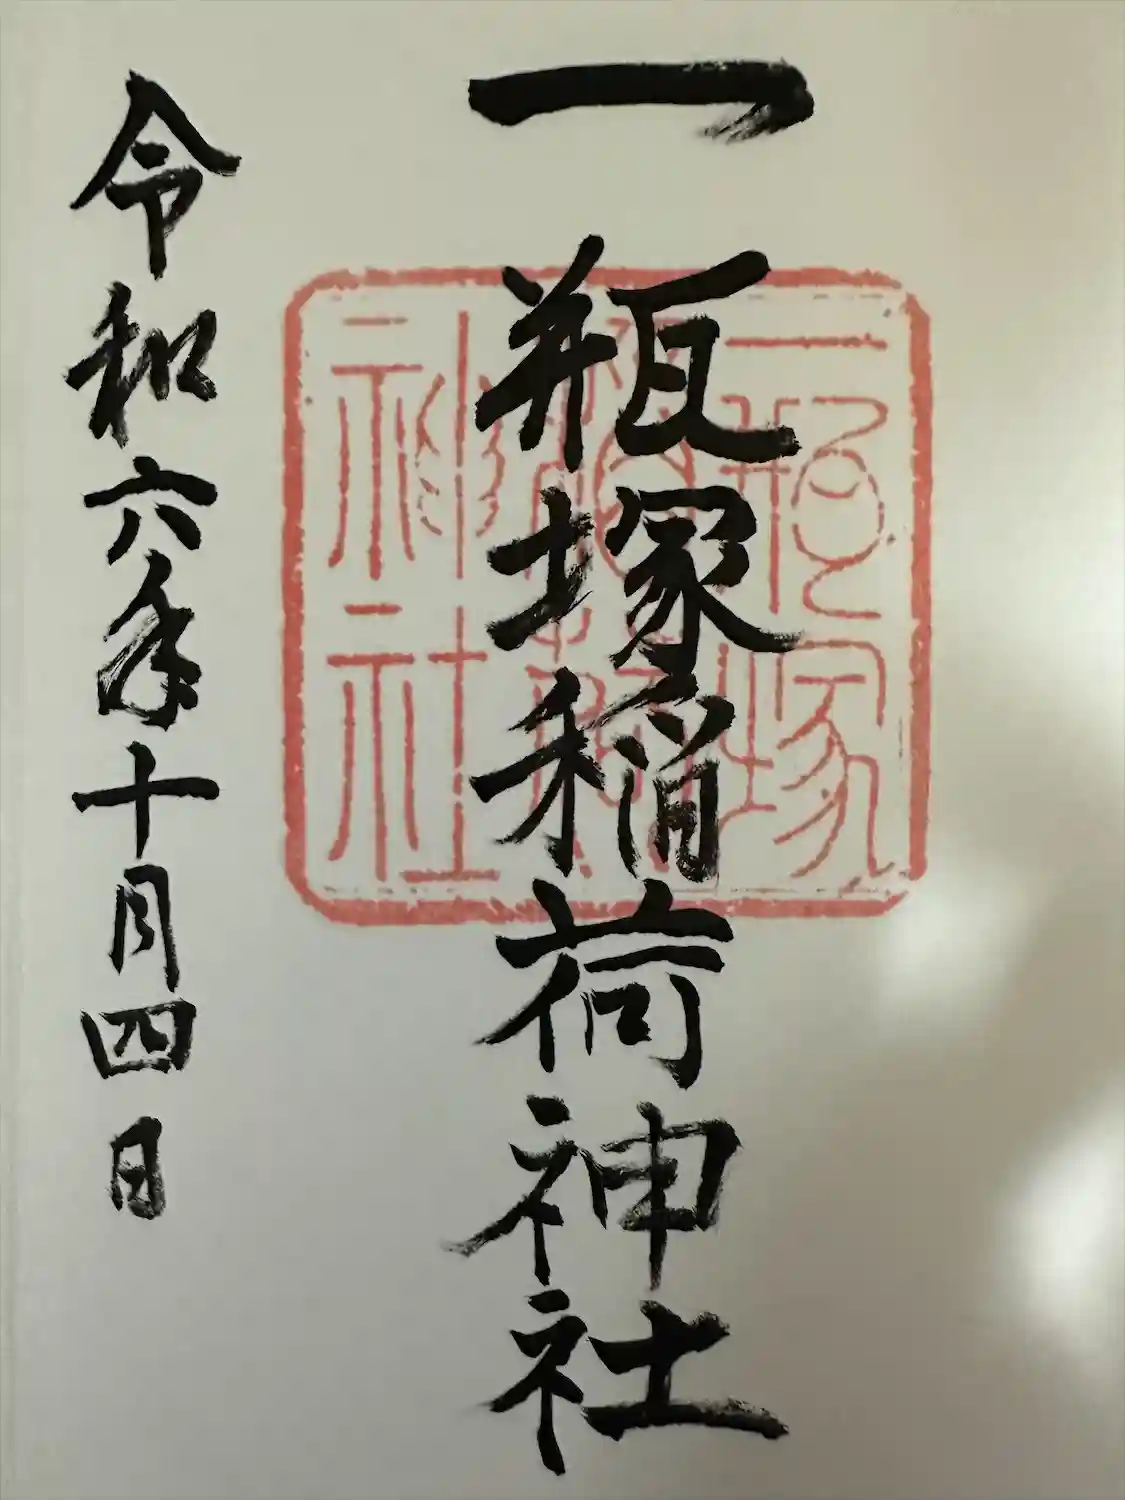 一瓶塚稲荷神社
一瓶塚
稲荷
神社
令和六年十月四日